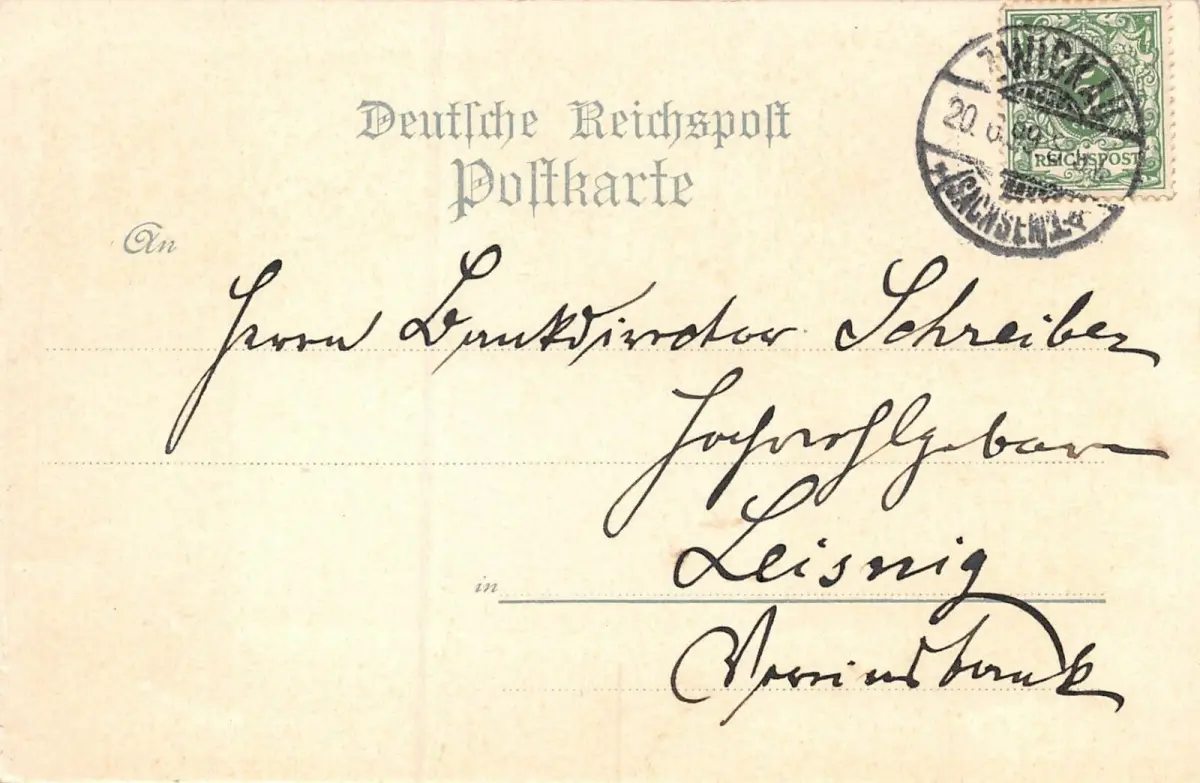 Deutsche Reichspost
Postkarte
ZWICKAU
20. 6. 99
(SACHSEN) 1
REICHSPOST
An
Herrn Bankdirector Schreiber
Hochwohlgeboren
in Leisnig
Vereinsbank